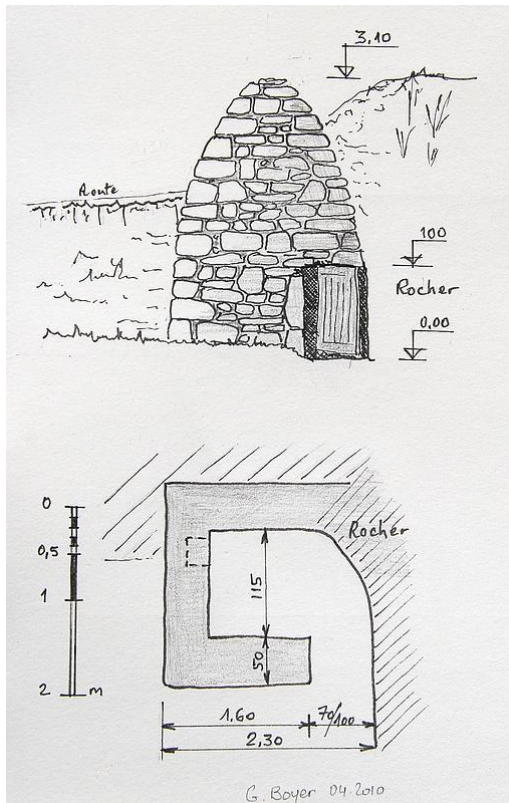 3,10
Route
100
Rocher
0,00
0
Rocher
0,5
115
1
50
2 m
1.60
70/100
2,30
G. Boyer 04.2010